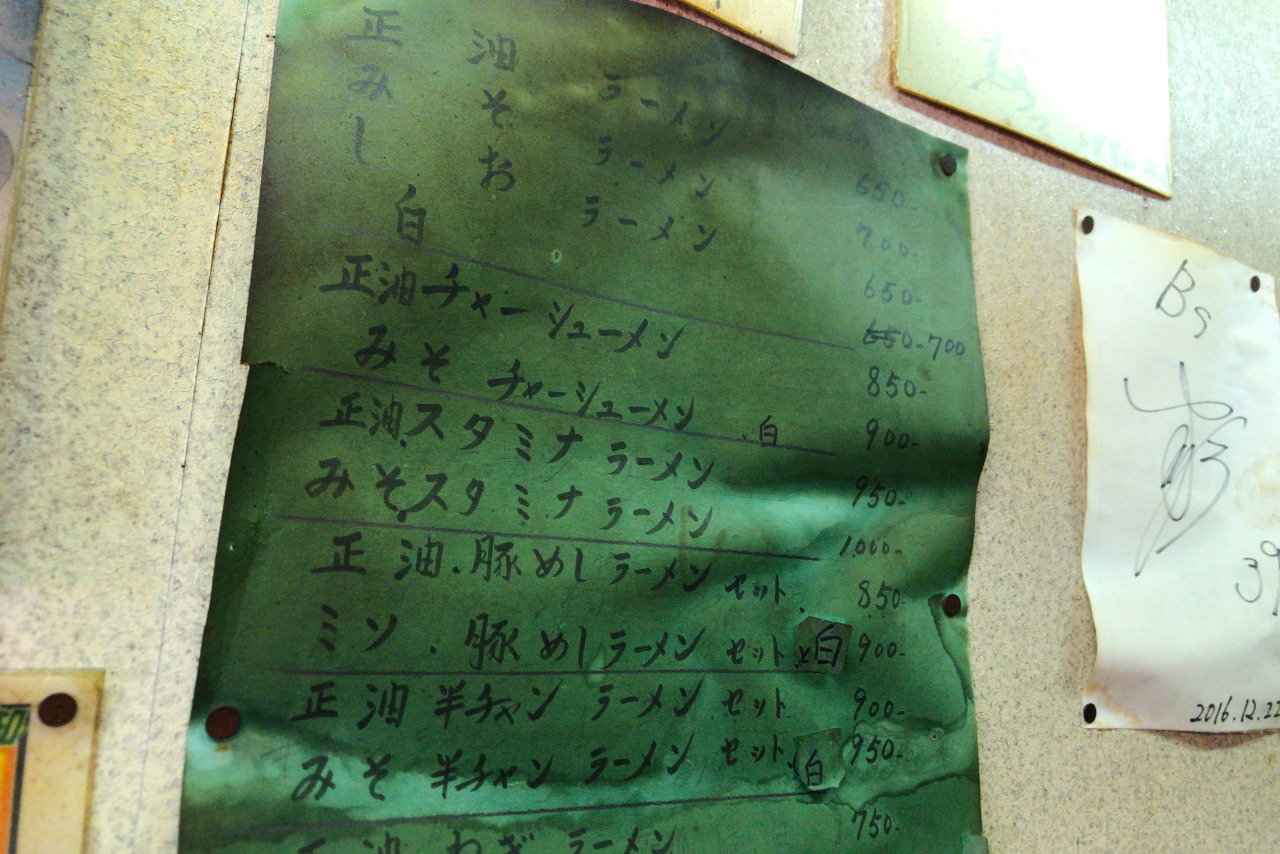 正油ラーメン 650-
みそラーメン 700-
しおラーメン 650-
白 650-700
正油チャーシューメン 850-
みそチャーシューメン.白 900-
正油スタミナラーメン 950-
みそスタミナラーメン 1,000-
正油.豚めしラーメンセット. 850-
ミソ.豚めしラーメンセット 白 900-
正油半チャンラーメンセット 900-
みそ半チャンラーメンセット.白 950-
正油ねぎラーメン 750-
Bs
39
2016.12.22